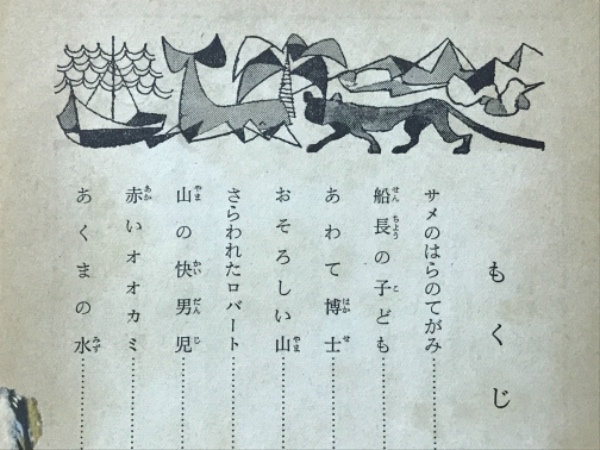 もくじ
サメのはらのてがみ
船長の子ども
あわて博士
おそろしい山
さらわれたロバート
山の快男児
赤いオオカミ
あくまの水